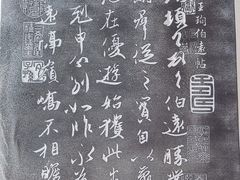 王珣伯遠帖
珣頓首頓首伯遠勝業
期群從之寶自以羸
志在優遊始獲此出
剋申分別如昨永為
遠隔嶺嶠不相瞻